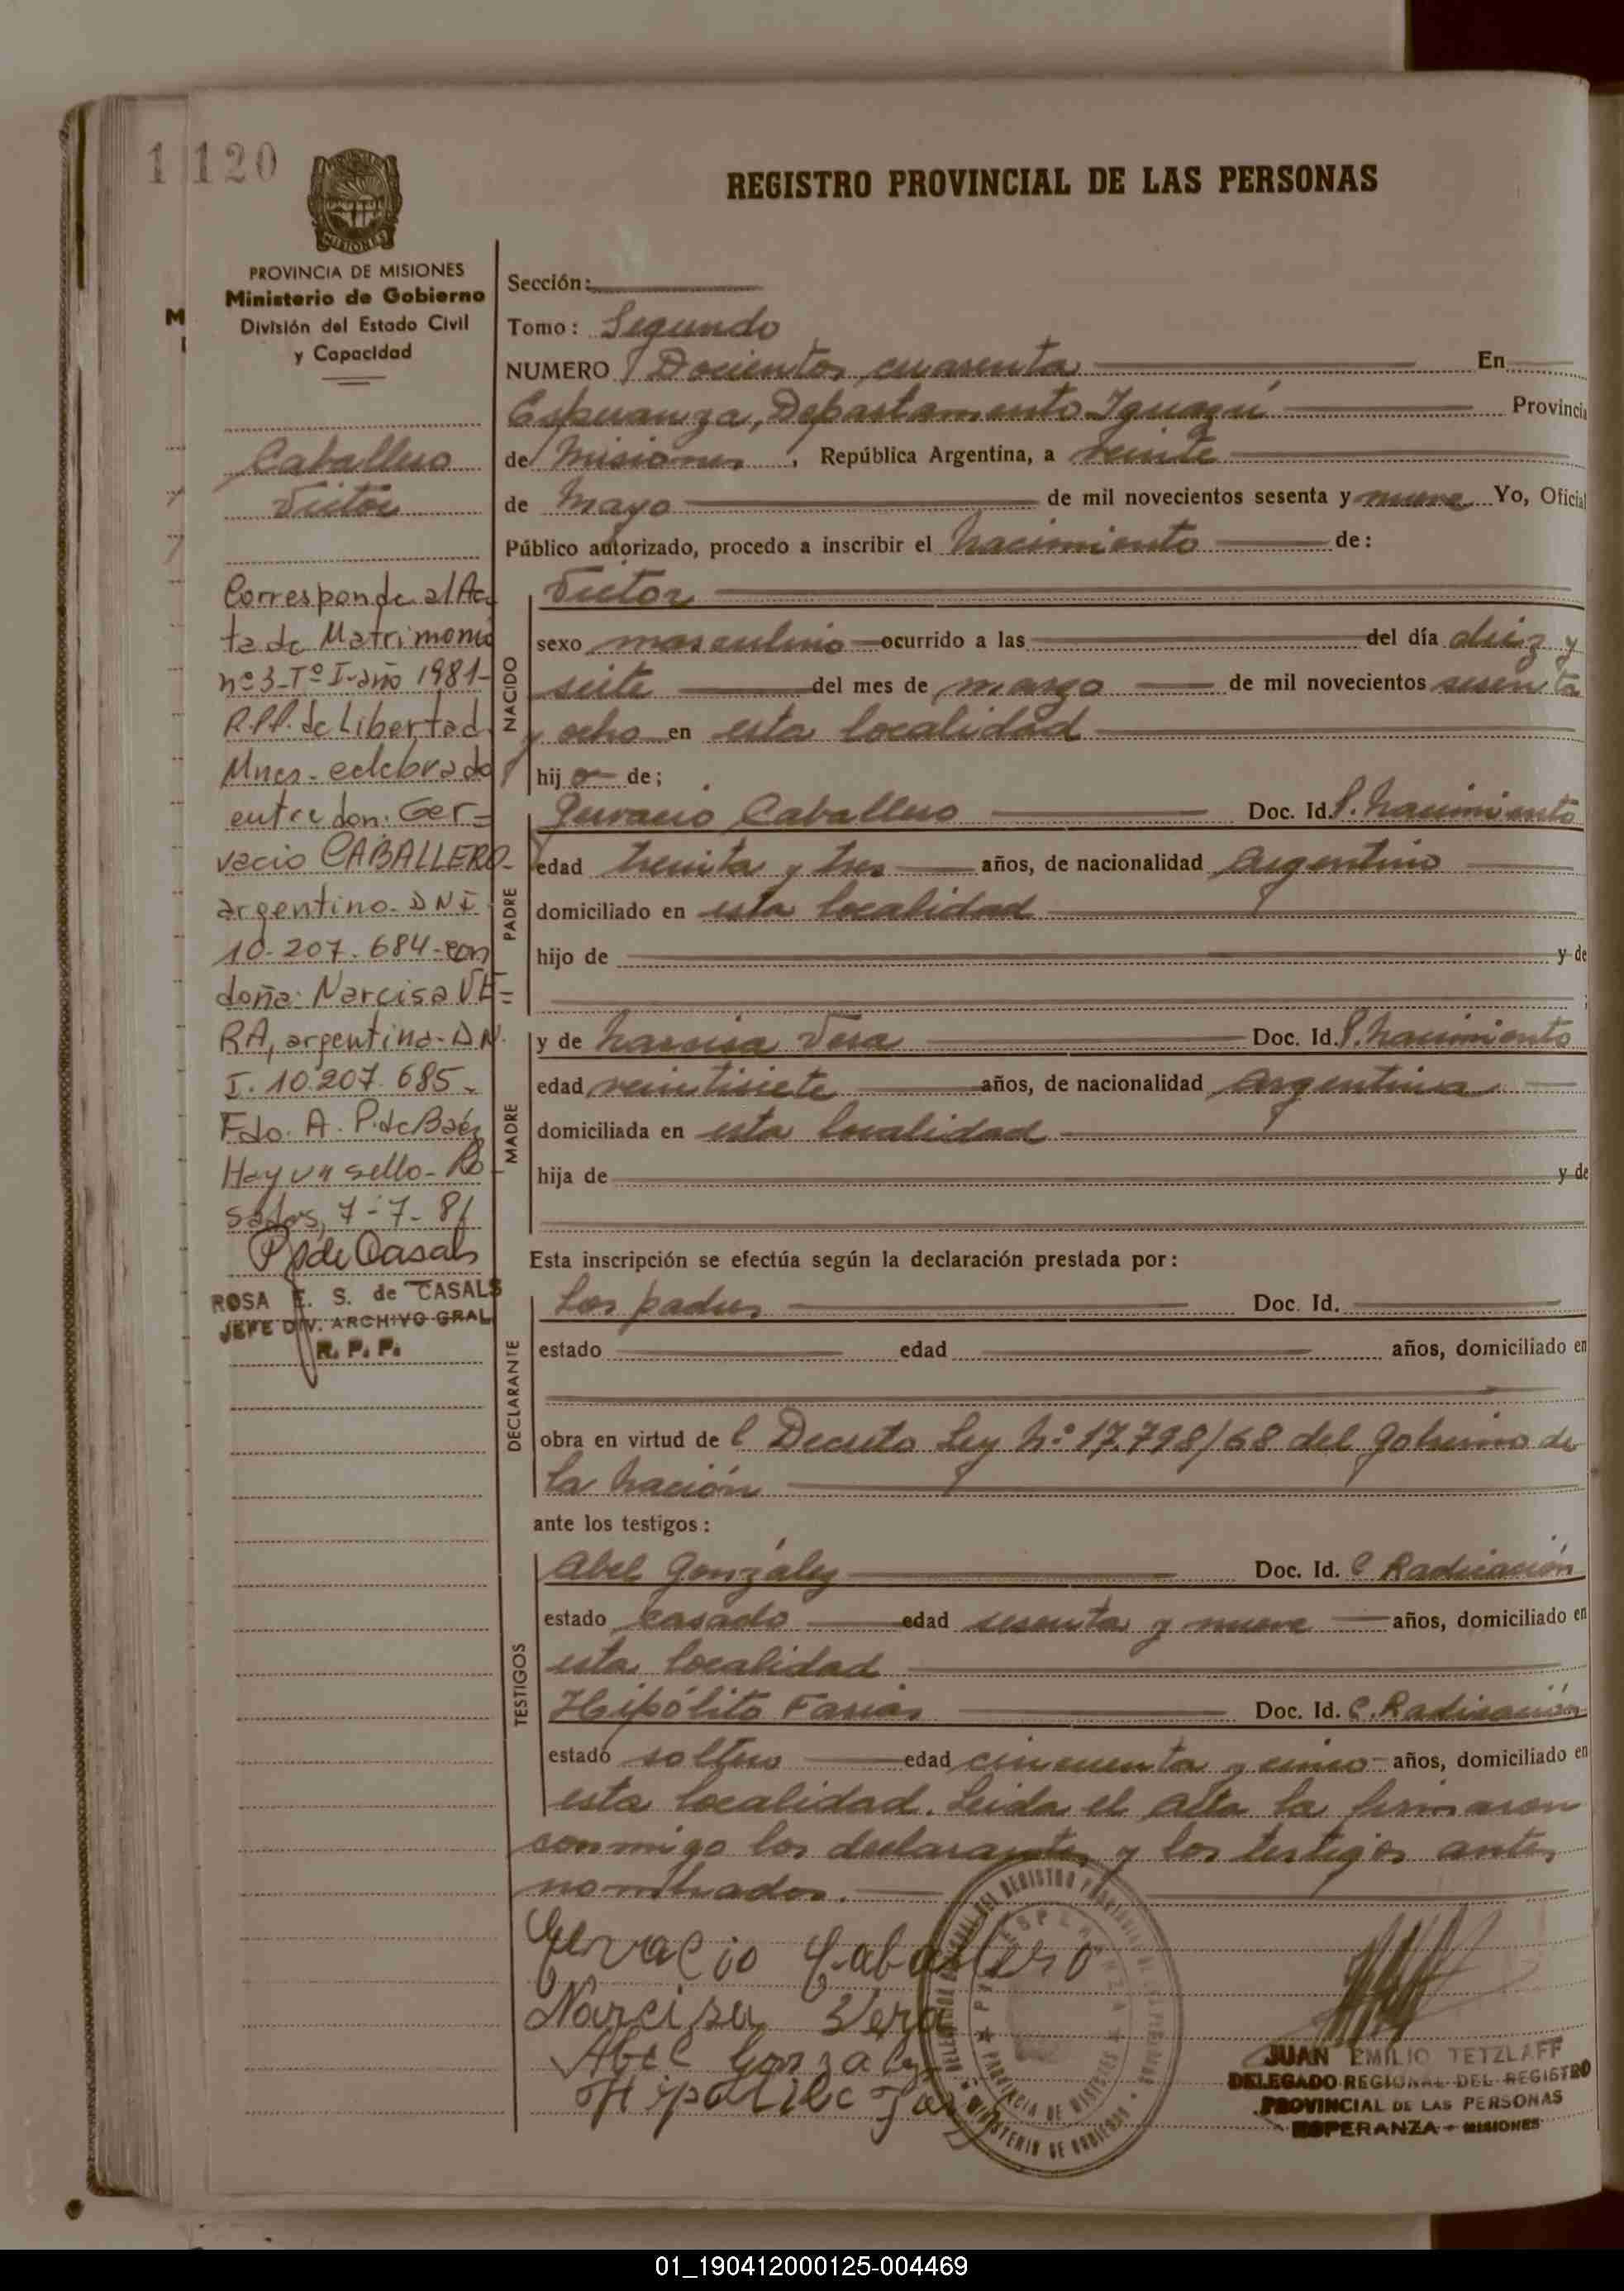 1 120
REGISTRO PROVINCIAL DE LAS PERSONAS
MISIONES
PROVINCIA DE MISIONES
Ministerio de Gobierno
División del Estado Civil
y Capacidad
Caballero
Victor
Corresponde al Ac
ta de Matrimonio
nº 3-Tº I-año 1981-
R.P.P. de Libertad
Mnes- celebrado
entre don: Ger=
vacio CABALLERO-
argentino- DNI
10.207.684-con
doña: Narcisa VE=
RA, argentina- DN
I. 10.207.685-
Fdo. A. P. de Baéz
Hay un sello- Po
sadas, 7-7-81
ROSA E. S. de CASALS
JEFE DIV. ARCHIVO GRAL
R. P. P.
Sección:
Tomo: Segundo
NUMERO Docientos cuarenta En
Esperanza, Departamento Iguazú Provincia
de Misiones, República Argentina, a veinte
de Mayo de mil novecientos sesenta y nueve Yo, Oficial
Público autorizado, procedo a inscribir el nacimiento de:
NACIDO
Victor
sexo masculino ocurrido a las del día diez y
siete del mes de marzo de mil novecientos sesenta
y ocho en esta localidad
hij o de;
PADRE
Gervacio Caballero Doc. Id. P. nacimiento
edad treinta y tres años, de nacionalidad Argentino
domiciliado en esta localidad
hijo de y de
MADRE
y de Narcisa Vera Doc. Id. P. nacimiento
edad veintisiete años, de nacionalidad Argentina
domiciliada en esta localidad
hija de y de
Esta inscripción se efectúa según la declaración prestada por:
DECLARANTE
Los padres Doc. Id.
estado edad años, domiciliado en
obra en virtud de l Decreto Ley Nº 17.798/68 del Gobierno de
la Nación
ante los testigos:
TESTIGOS
Abel González Doc. Id. C Radicación
estado casado edad sesenta y nueve años, domiciliado en
esta localidad
Hipólito Farias Doc. Id. C. Radicación
estado soltero edad cincuenta y cinco años, domiciliado en
esta localidad. Leida el Acta la firmaron
conmigo los declarantes y los testigos antes
nombrados.
Gervacio Caballero
Narcisa Vera
Abel Gonzalez
JUAN EMILIO TETZLAFF
DELEGADO REGIONAL DEL REGISTRO
PROVINCIAL DE LAS PERSONAS
ESPERANZA - MISIONES
ESPERANZA
PROVINCIA DE MISIONES
MINISTERIO DE GOBIERNO
01_190412000125-004469